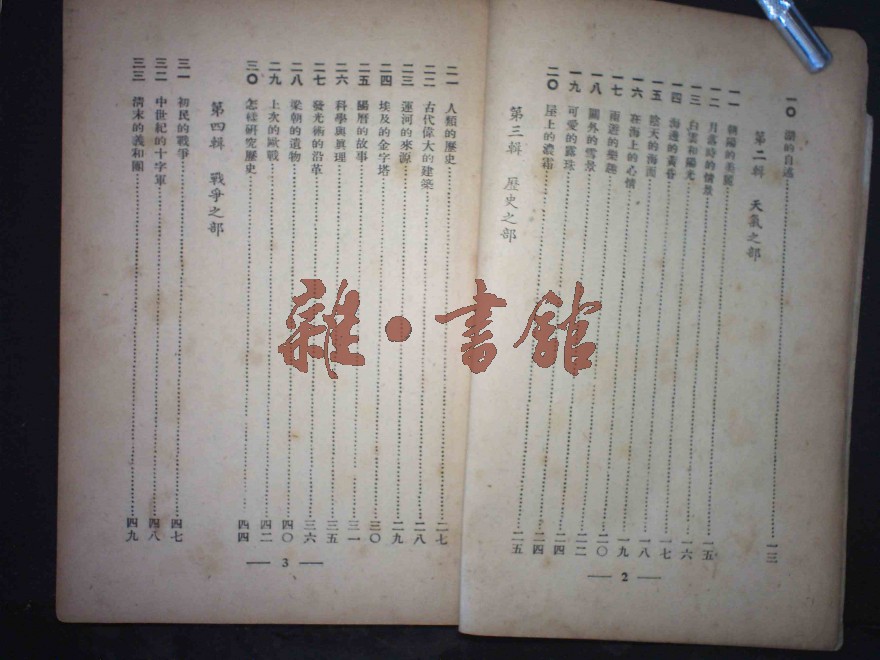 一〇 湖的自述……一三
第二輯 天氣之部
一一 朝陽的美麗……一五
一二 月落時的情景……一五
一三 白雲和陽光……一六
一四 海邊的黃昏……一七
一五 陰天的海面……一八
一六 在海上的心情……一九
一七 雨遊的樂趣……二〇
一八 園外的雪景……二二
一九 可愛的露珠……二四
二〇 屋上的濃霜……二四
第三輯 歷史之部……二五
2
二一 人類的歷史……二七
二二 古代偉大的建築……二八
二三 運河的來源……二九
二四 埃及的金字塔……三〇
二五 陽曆的故事……三一
二六 科學與眞理……三五
二七 發光術的沿革……三六
二八 梁朝的遺物……四〇
二九 上次的歐戰……四二
三〇 怎樣研究歷史……四四
第四輯 戰爭之部
三一 初民的戰爭……四七
三二 中世紀的十字軍……四八
三三 清末的義和團……四九
3
雜·書館